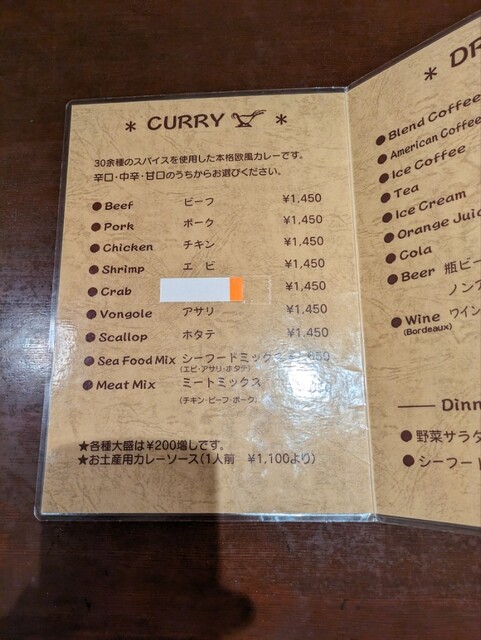 * CURRY *
30余種のスパイスを使用した本格欧風カレーです。
辛口・中辛・甘口のうちからお選びください。
●Beef ビーフ ¥1,450
●Pork ポーク ¥1,450
●Chicken チキン ¥1,450
●Shrimp エビ ¥1,450
●Crab ¥1,450
●Vongole アサリ ¥1,450
●Scallop ホタテ ¥1,450
●Sea Food Mix シーフードミックス
(エビ・アサリ・ホタテ)
●Meat Mix ミートミックス
(チキン・ビーフ・ポーク)
★各種大盛は¥200増しです。
★お土産用カレーソース(1人前 ¥1,100より)
* DR
●Blend Coffee
●American Coffee
●Ice Coffee
●Tea
●Ice Cream
●Orange Juic
●Cola
●Beer 瓶ビー
ノンア
●Wine ワイン
(Bordeaux)
Dinn
●野菜サラダ
●シーフード